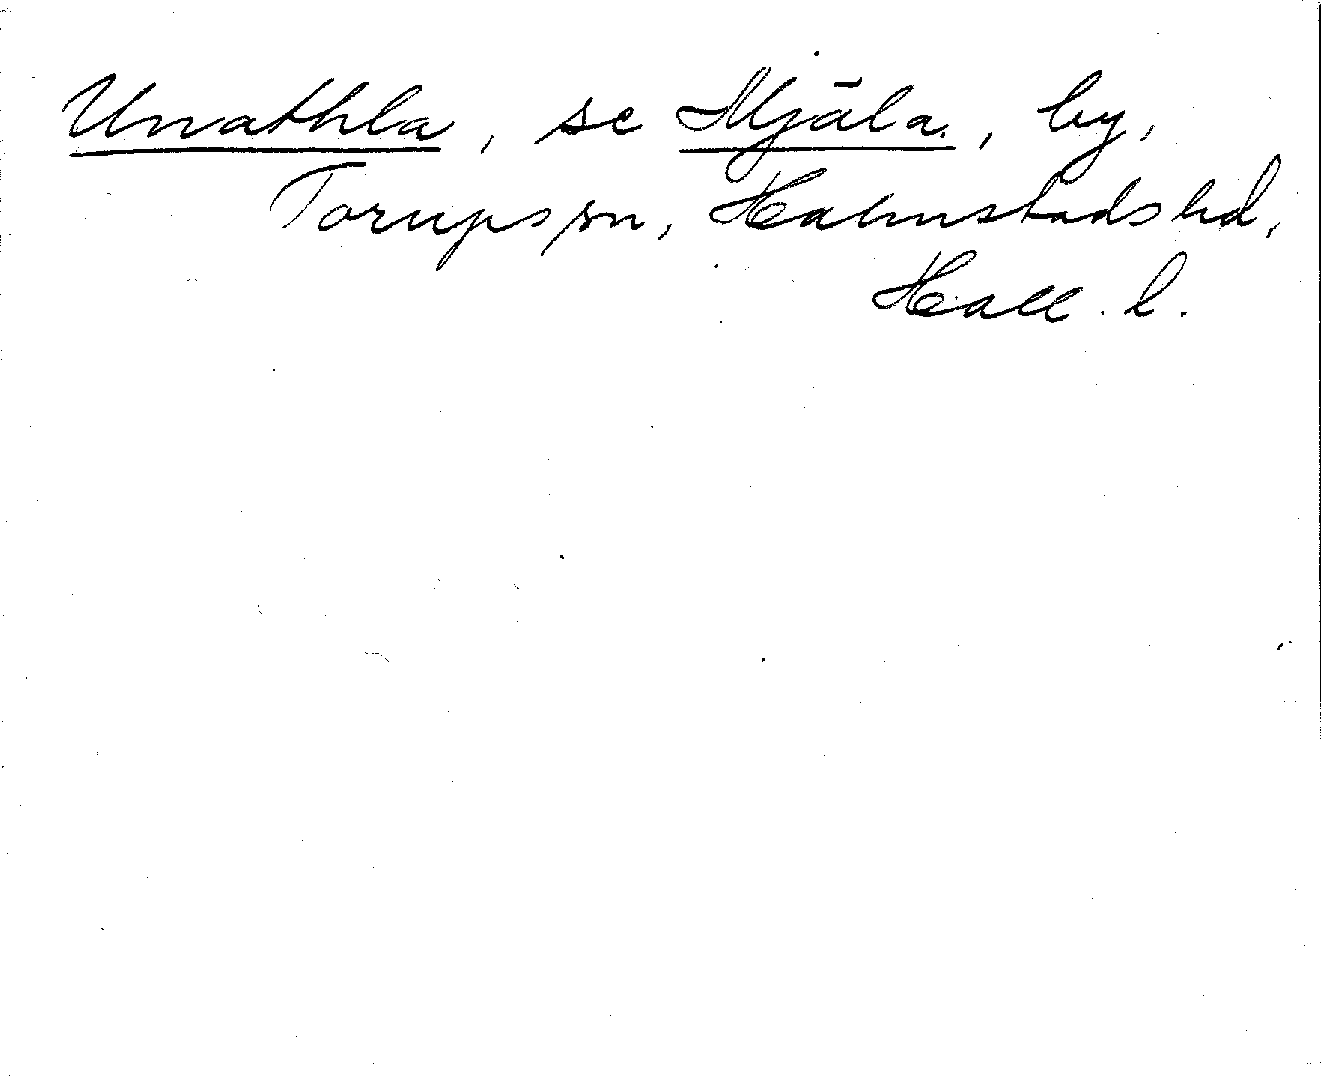 Unathla, se Mjäla, by,
Torups sn, Halmstads hd,
Hall. l.